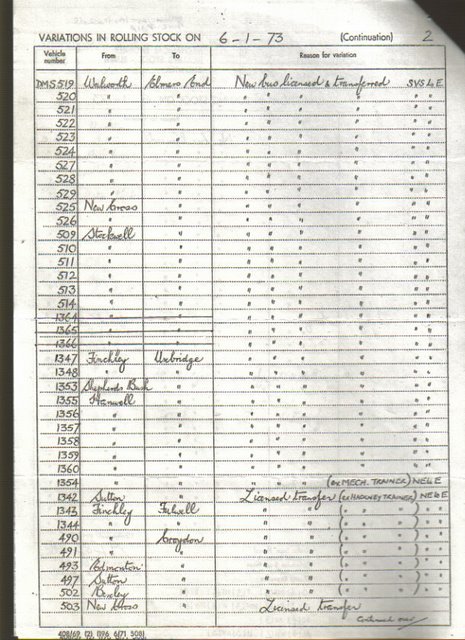 VARIATIONS IN ROLLING STOCK ON 6-1-73 (Continuation) 2
Vehicle number From To Reason for variation
DMS 519 Walworth Almers End New bus licensed & transferred SVS L E
520 " " " " " " "
521 " " " " " " "
522 " " " " " " "
523 " " " " " " "
524 " " " " " " "
527 " " " " " " "
528 " " " " " " "
529 " " " " " " "
525 New Cross " " " " " " "
526 " " " " " " " "
509 Stockwell " " " " " "
510 " " " " " " "
511 " " " " " " "
512 " " " " " " "
513 " " " " " " "
514 " " " " " " "
1364 " " " " " " "
1365 " " " " " " "
1366 " " " " " " "
1347 Finchley Uxbridge " " " " "
1348 " " " " " " "
1353 Shepherds Bush " " " " " "
1355 Hanwell " " " " " "
1356 " " " " " " "
1357 " " " " " " "
1358 " " " " " " "
1359 " " " " " " "
1360 " " " " " " "
1354 " " " " " (ex MECH. TRAINER) NE6 E
1342 Sutton " Licensed transfer (ex HACKNEY TRAINER) NE6 E
1343 Finchley Fulwell " " ( " " " ) " "
1344 " " " " ( " " " ) " "
490 " Croydon " " ( " " " ) " "
491 " " " " ( " " " ) " "
493 Edmonton " " " ( " " " ) " "
497 Sutton " " " ( " " " ) " "
502 Bexley " " " ( " " " ) " "
503 New Cross " Licensed transfer
Continued over